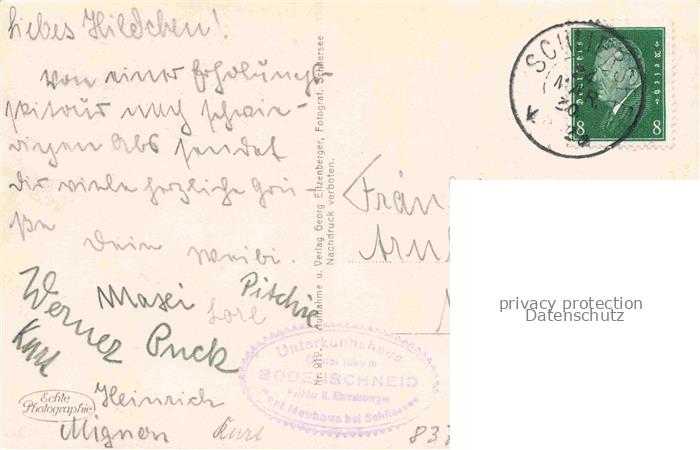 Liebes Hildchen!
Von einer Erholungs-
skitour nach schwie-
rigem Abs sendet
dir viele herzliche Grü-
ße
Deine Weibi.
Masei Pitschi
Lore
Werner Puck
Kurt
Heinrich
Mignon Kurt
Echte
Photographie
Nr. 919. Aufnahme u. Verlag Georg Eitzenberger, Fotograf, Schliersee
Nachdruck verboten.
Unterkunftshaus
BODENSCHNEID
Pächter
Post Neuhaus bei Schliersee
SCHLIERSEE
Deutsches Reich
8 8
Fräul
Arn
837
privacy protection
Datenschutz